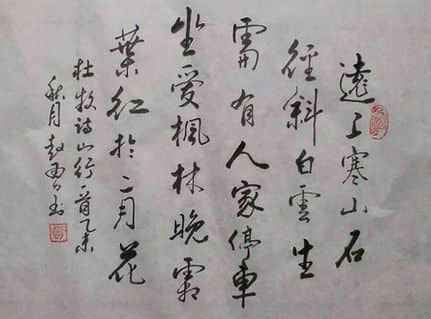 遠上寒山石
徑斜白雲生
處有人家停車
坐愛楓林晚霜
葉紅於二月花
杜牧詩山行一首乙未
秋月書